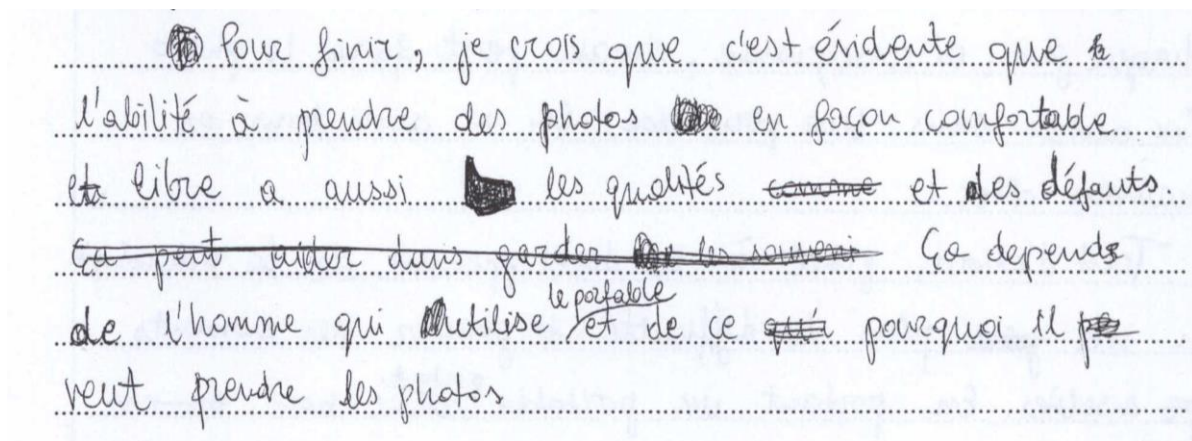 Pour finir, je crois que c'est évidente que
l'abilité à prendre des photos en façon comfortable
et libre a aussi les qualités comme et des défauts.
Ça peut aider dans garder les souveni Ça depends
de l'homme qui utilise le portable et de ce pourquoi il
veut prendre les photos